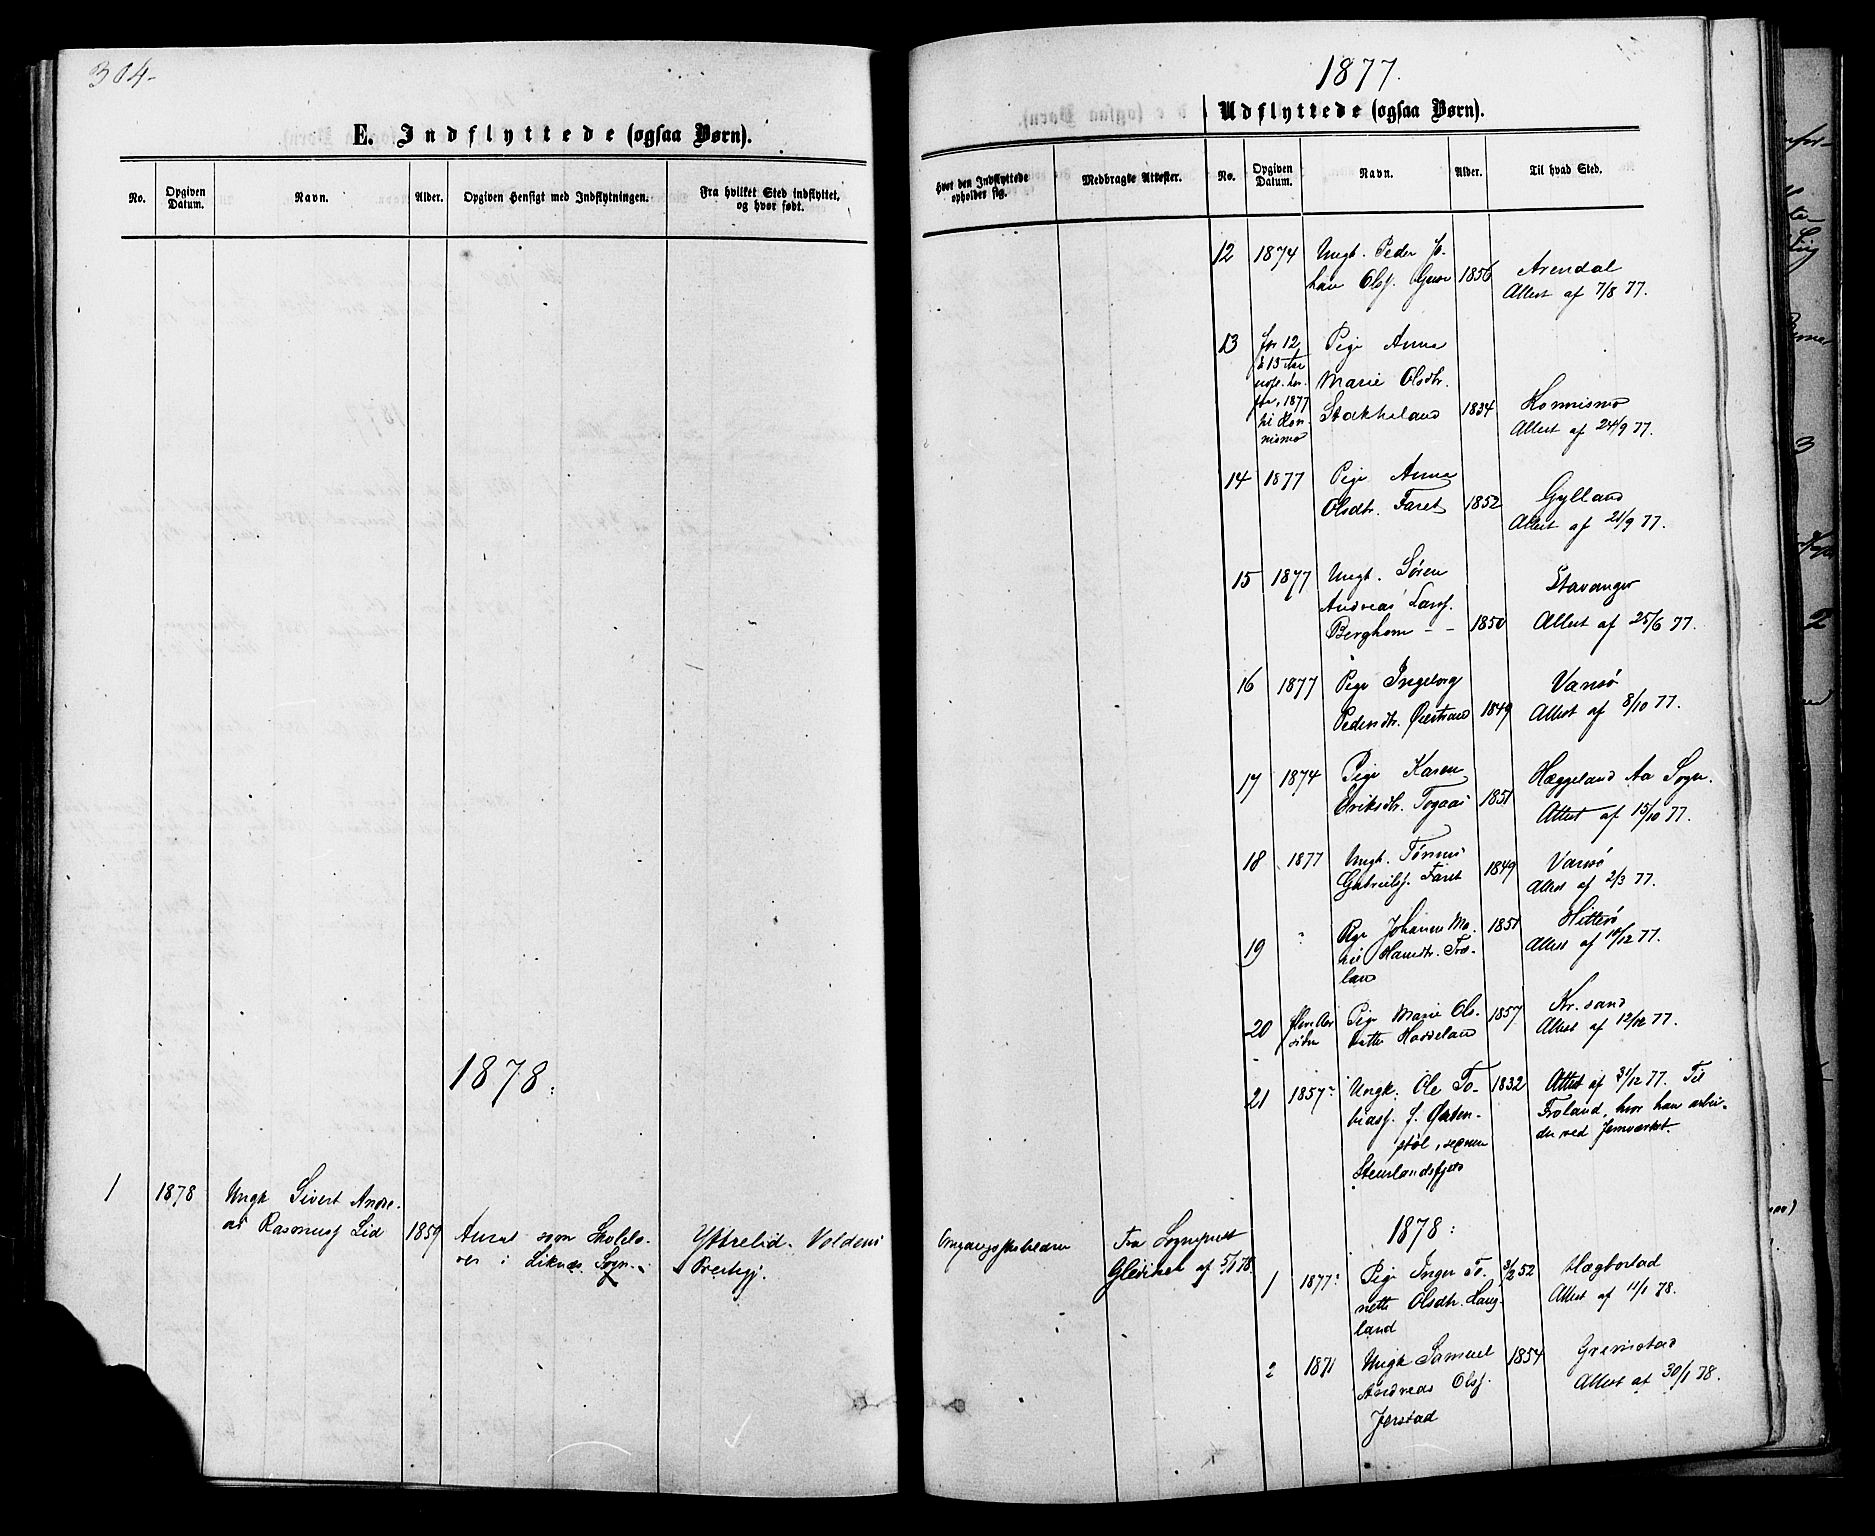 304-
E. Indflyttede (ogsaa Børn).
No.
Opgiven Datum.
Navn.
Alder.
Opgiven Hensigt med Indflytningen.
Fra hvilket Sted indflyttet,
og hvor født.
1878:
1
1878
Ungk Sivert Andre-
as Rasmuss Lid
1859
Ansat som Skolelæ-
rer i Liknes Sogn
Yttrelid. Voldens
Prestegj.
1877.
Udflyttede (ogsaa Børn).
Hvor den Indflyttede
opholder sig.
Medbragte Attester.
No.
Opgiven Datum.
Navn.
Alder.
Til hvad Sted.
12
1874
Ungk. Peder Jo-
han Ols.
1856
Arendal
Attest af 7/8 77.
13
for 12
à 13 Aar
1877
til Kon-
nismo
Pige Anna
Marie Olsdtr.
Stakkeland
1834
Konnismo
Attest af 24/9 77.
14
1877
Pige Anna
Olsdtr. Faret
1852
Gylland
Attest af 21/9 77.
15
1877
Ungk. Søren
Andreas Larss.
Berghom - -
1850
Stavanger
Attest af 25/6 77.
16
1877
Pige Ingeborg
Pedersdtr. Øiestrand
1849
Vansø
Attest af 8/10 77.
17
1874
Pige Karen
Eriksdtr. Togaas
1851
Hæggeland Aa Sogn.
Attest af 15/10 77.
18
1877
Ungk. Tønnes
Gabriels. Faret
1849
Vansø
Attest af 2/3 77.
19
"
Pige Johanne Ma-
rie Hansdtr. Frø-
land
1851
Hitterø
Attest af 10/12 77.
20
flere Aar
siden
Pige Marie Ols-
datter Hasseland
1857
Kr. sand
Attest af 12/12 77.
21
1857?
Ungk. Ole To-
biass. f.
støl, senere
Steurlandsfjeld
1832
Attest af 31/12 77. Til
Froland, hvor han arbei-
der ved Jernværket.
Omgangsskolelærer
Fra Sogneprest
af 5/1 78.
1878:
1
1877?
Pige Inger To-
nette Olsdtr. Haug-
land
3/2 52
Hægbostad
Attest af 11/1 78.
2
1871
Ungk Samuel
Andreas Olss.
Jerstad
1854
Grimstad
Attest af 30/1 78.